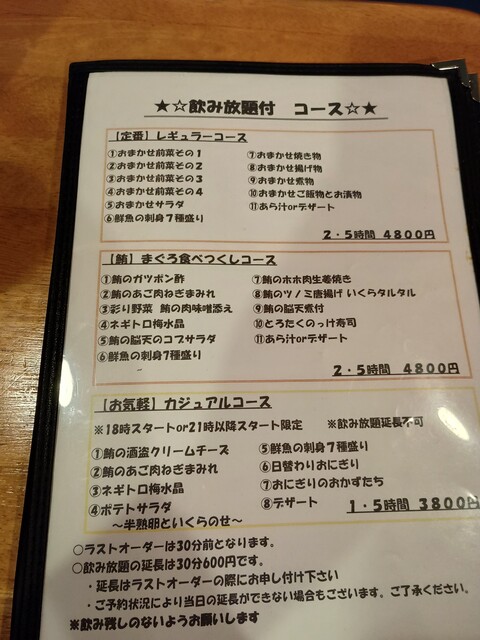 ★☆飲み放題付 コース☆★
【定番】レギュラーコース
①おまかせ前菜その1
②おまかせ前菜その2
③おまかせ前菜その3
④おまかせ前菜その4
⑤おまかせサラダ
⑥鮮魚の刺身7種盛り
⑦おまかせ焼き物
⑧おまかせ揚げ物
⑨おまかせ煮物
⑩おまかせご飯物とお漬物
⑪あら汁orデザート
2・5時間 4800円
【鮪】まぐろ食べつくしコース
①鮪のガツポン酢
②鮪のあご肉ねぎまみれ
③彩り野菜 鮪の肉味噌添え
④ネギトロ梅水晶
⑤鮪の脳天のコブサラダ
⑥鮮魚の刺身7種盛り
⑦鮪のホホ肉生姜焼き
⑧鮪のツノミ唐揚げ いくらタルタル
⑨鮪の脳天煮付
⑩とろたくのっけ寿司
⑪あら汁orデザート
2・5時間 4800円
【お気軽】カジュアルコース
※18時スタートor21時以降スタート限定 ※飲み放題延長不可
①鮪の酒盗クリームチーズ
②鮪のあご肉ねぎまみれ
③ネギトロ梅水晶
④ポテトサラダ
～半熟卵といくらのせ～
⑤鮮魚の刺身7種盛り
⑥日替わりおにぎり
⑦おにぎりのおかずたち
⑧デザート
1・5時間 3800円
○ラストオーダーは30分前となります。
○飲み放題の延長は30分600円です。
・延長はラストオーダーの際にお申し付け下さい
・ご予約状況により当日の延長ができない場合もございます。ご了承ください。
※飲み残しのないようお願いします